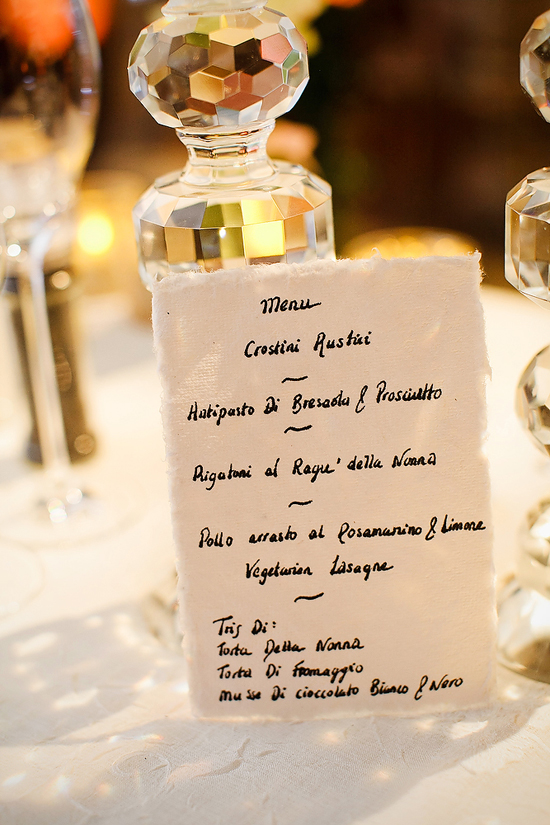 Menu
Crostini Rustici
~
Antipasto Di Bresaola & Prosciutto
~
Rigatoni al Ragu' della Nonna
~
Pollo arrasto al Rosamarino & Limone
Vegetarian Lasagne
~
Tris Di:
Torta Della Nonna
Torta Di Fromaggio
Musse Di cioccolato Bianco & Nero